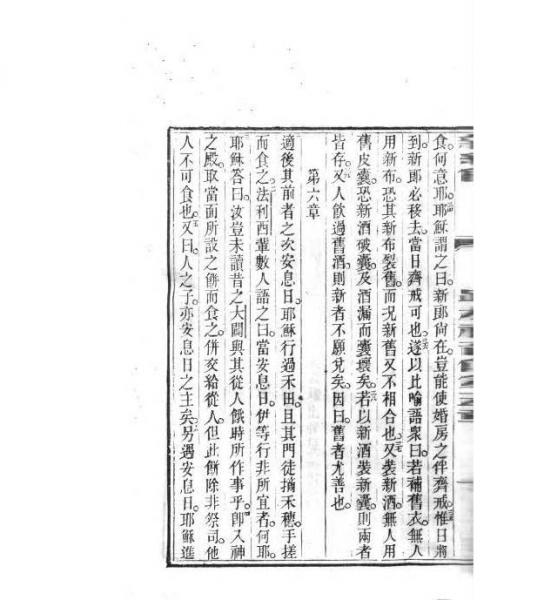 食何意耶耶穌謂之曰新郎尙在豈能使婚房之伴齊戒惟日將
到新郎必移去當日齊戒可也遂以此喻語衆曰若補舊衣無人
用新布恐其新布裂舊而况新舊又不相合也又裝新酒無人用
舊皮囊恐新酒破囊及酒漏而囊壞矣若以新酒裝新囊則兩者
皆存又人飲過舊酒則新者不願兌矣因曰舊者尤善也
第六章
適後其前者之次安息日耶穌行過禾田且其門徒摘禾穗手搓
而食之法利西輩數人語之曰當安息日伊等行非所宜者何耶
耶穌答曰汝豈未讀昔之大闢與其從人餓時所作事乎卽入神
之殿取當面所設之餅而食之併交給從人但此餅除非祭司他
人不可食也又曰人之子亦安息日之主矣另遇安息日耶穌進